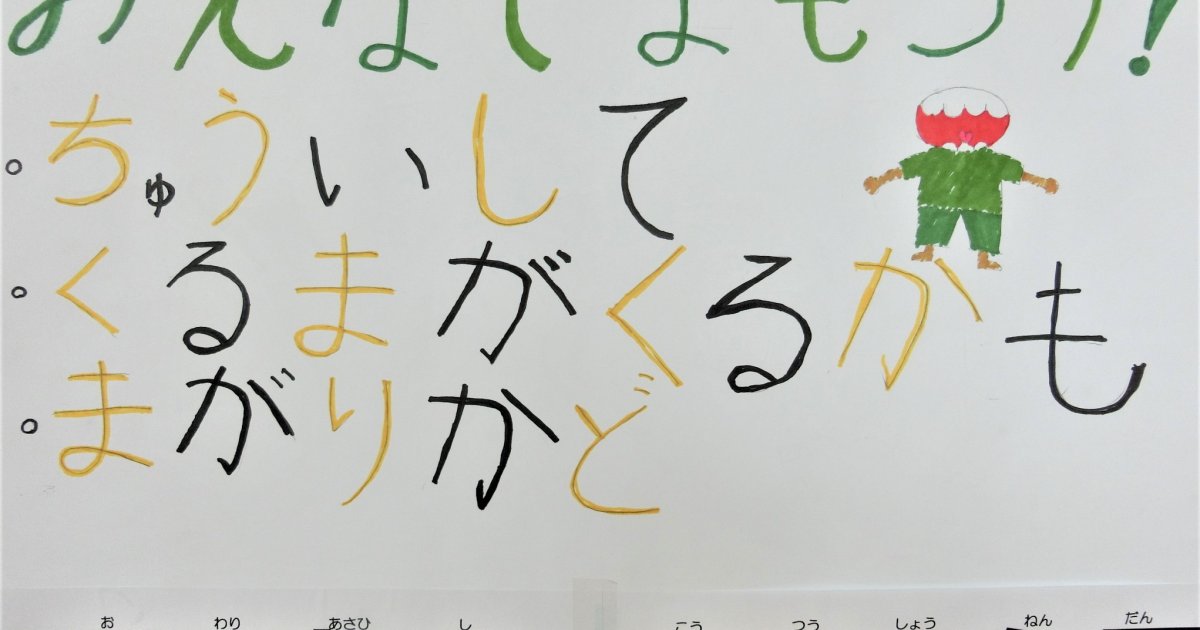 みんなでまもろう!
。ちゅういして
。くるまがくるかも
。まがりかど
お わり あさひ し こう つう しょう ねん だん